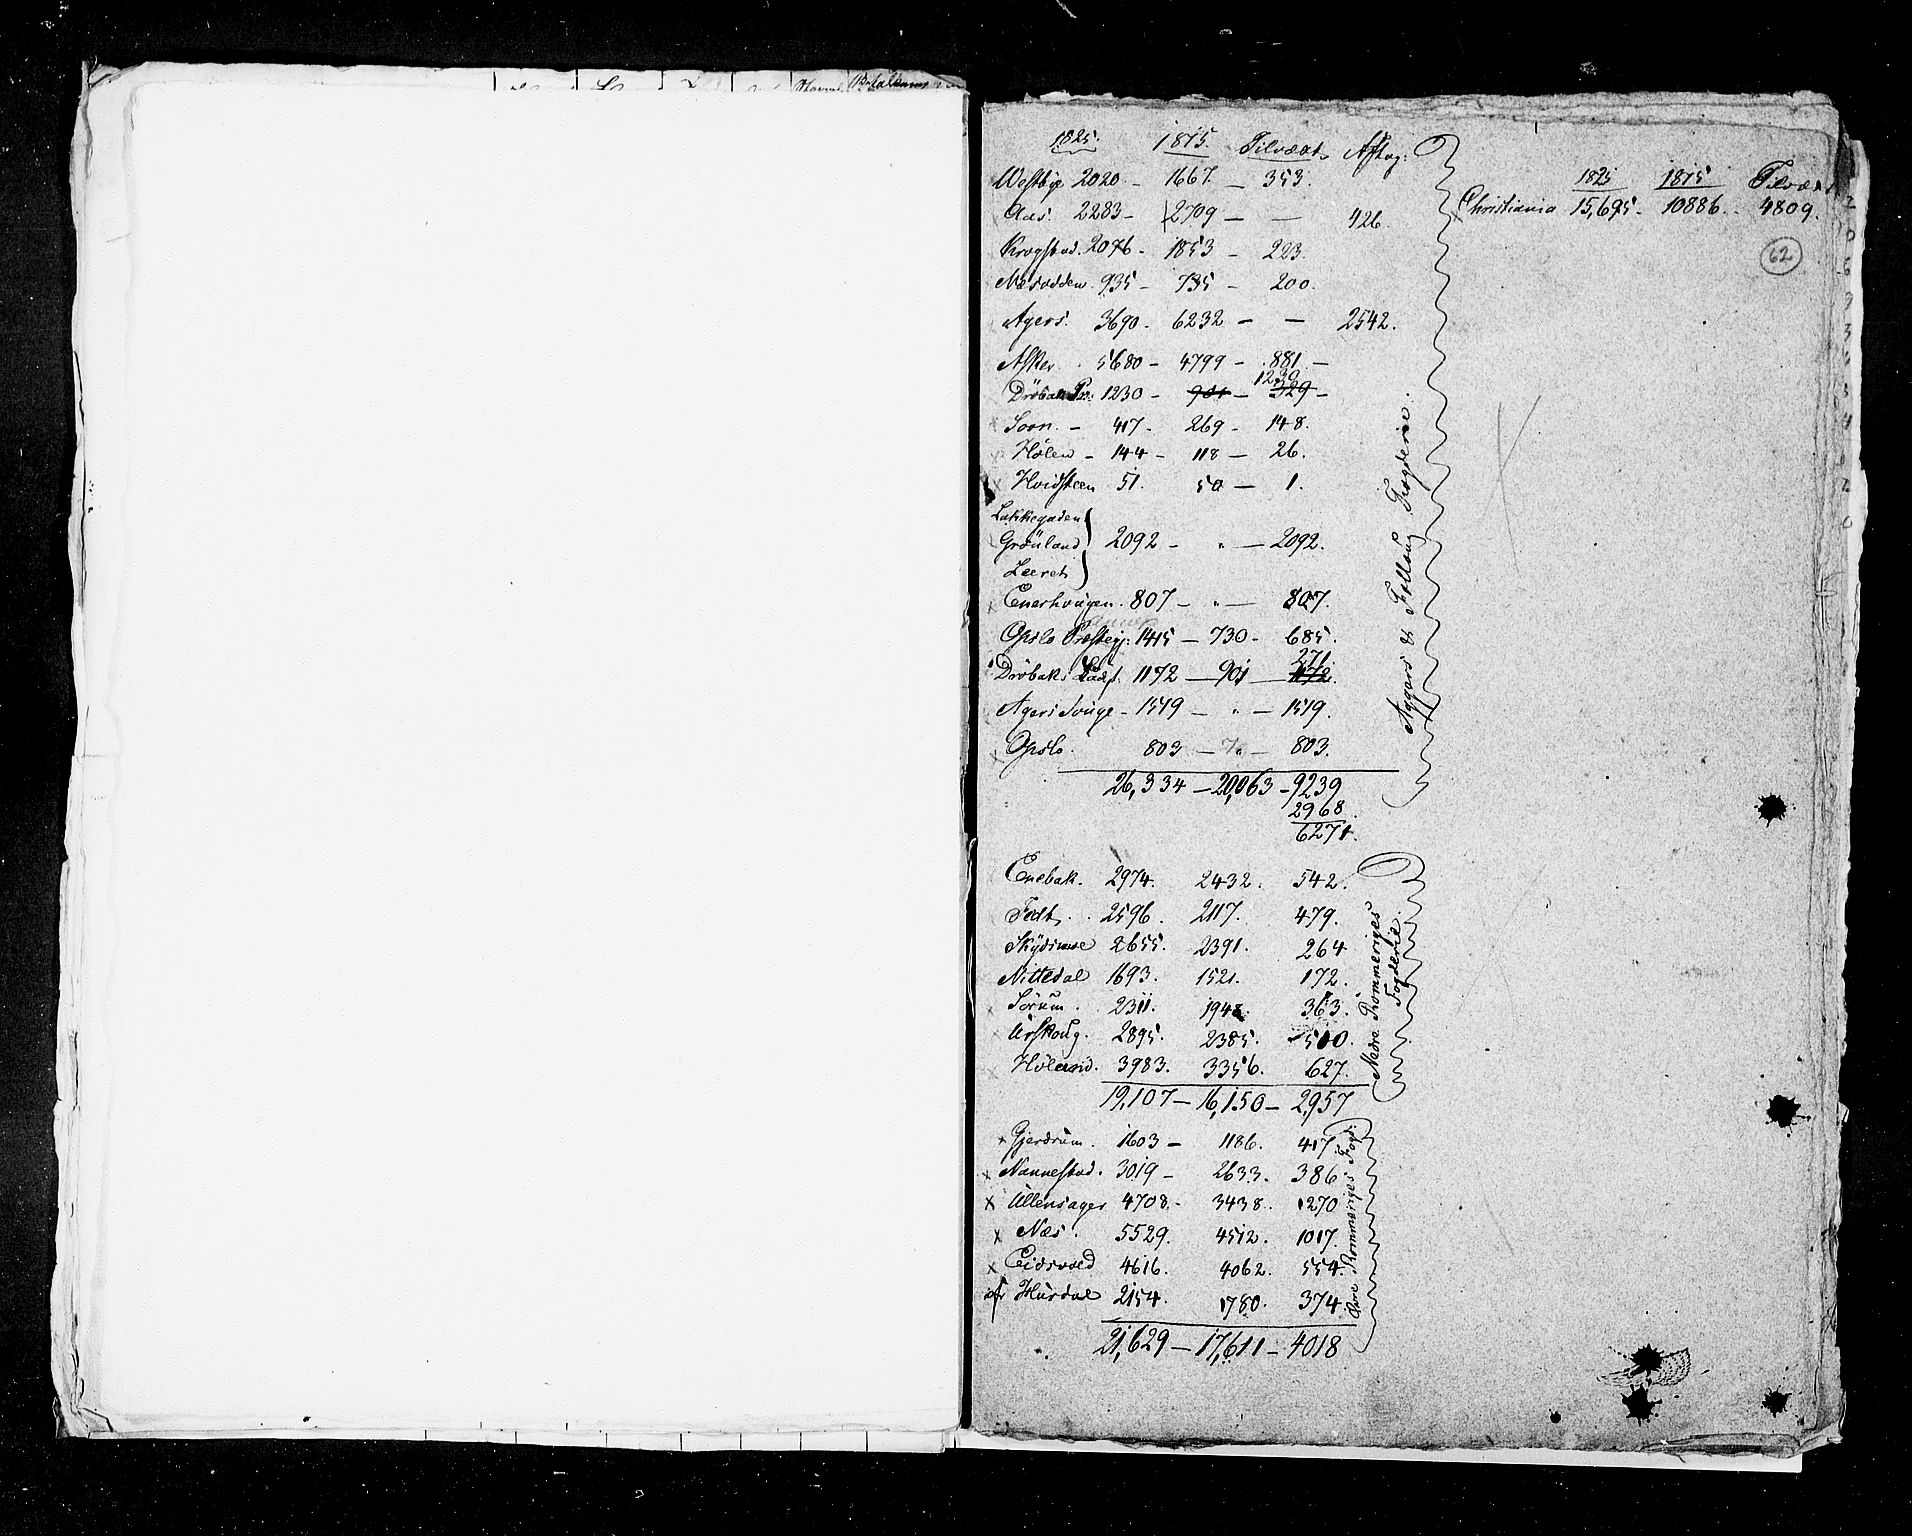 1825. 1815. Tilvæxt Aftag:
Westbye 2020 - 1667 - 353.
Aas. 2283 - 2709 - — 426.
Krogstad. 2076 - 1853 - 223.
Næsodden. 935 - 735 - 200.
Agers. 3690 - 6232 - — 2542.
Asker. 5680 - 4799 - 881 -
Dröbak Pr: 1230 - 901 - 329 - 1230
Soon. - 417 - 269 - 148.
Hölen - 144 - 118 - 26.
Hvidsteen 51. 50 - 1.
Lakkegaden
Grönland 2092 - " - 2092.
Leeret
Enerhougen. 807 - " - 807.
Opslo Præstegj: 1415 - 730 - 685.
271
Dröbaks Ladst. 1172 - 901 - 1172.
Agers Souge - 1519 - " - 1519.
Opslo. 803 - " - 803.
26,334 - 20,063 - 9239
2968.
6271.
Aggers & Folloug Fogderie.
Enebak. 2974. 2432. 542.
Fedt. 2596. 2117. 479.
Skydsmoe 2655. 2391. 264
Nittedal 1693. 1521. 172.
Sörum. 2311. 1948. 363.
Urskoug. 2895. 2385. 510.
Höland. 3983. 3356. 627.
19,107 - 16,150 - 2957
Nedre Rommeriges
Fogderie.
Gjerdrum. 1603 - 1186. 417
Nannestad. 3019 - 2633. 386
Ullensager 4708. - 3438. 1270
Næs. 5529. 4512. 1017.
Eidsvold 4616. 4062. 554.
Hurdal 2154. 1780. 374
21,629 - 17,611 - 4018
Øvre Rommeriges Fogd:
1825 1815 Tilvæxt
Christiania 15,695 - 10886. - 4809.
62